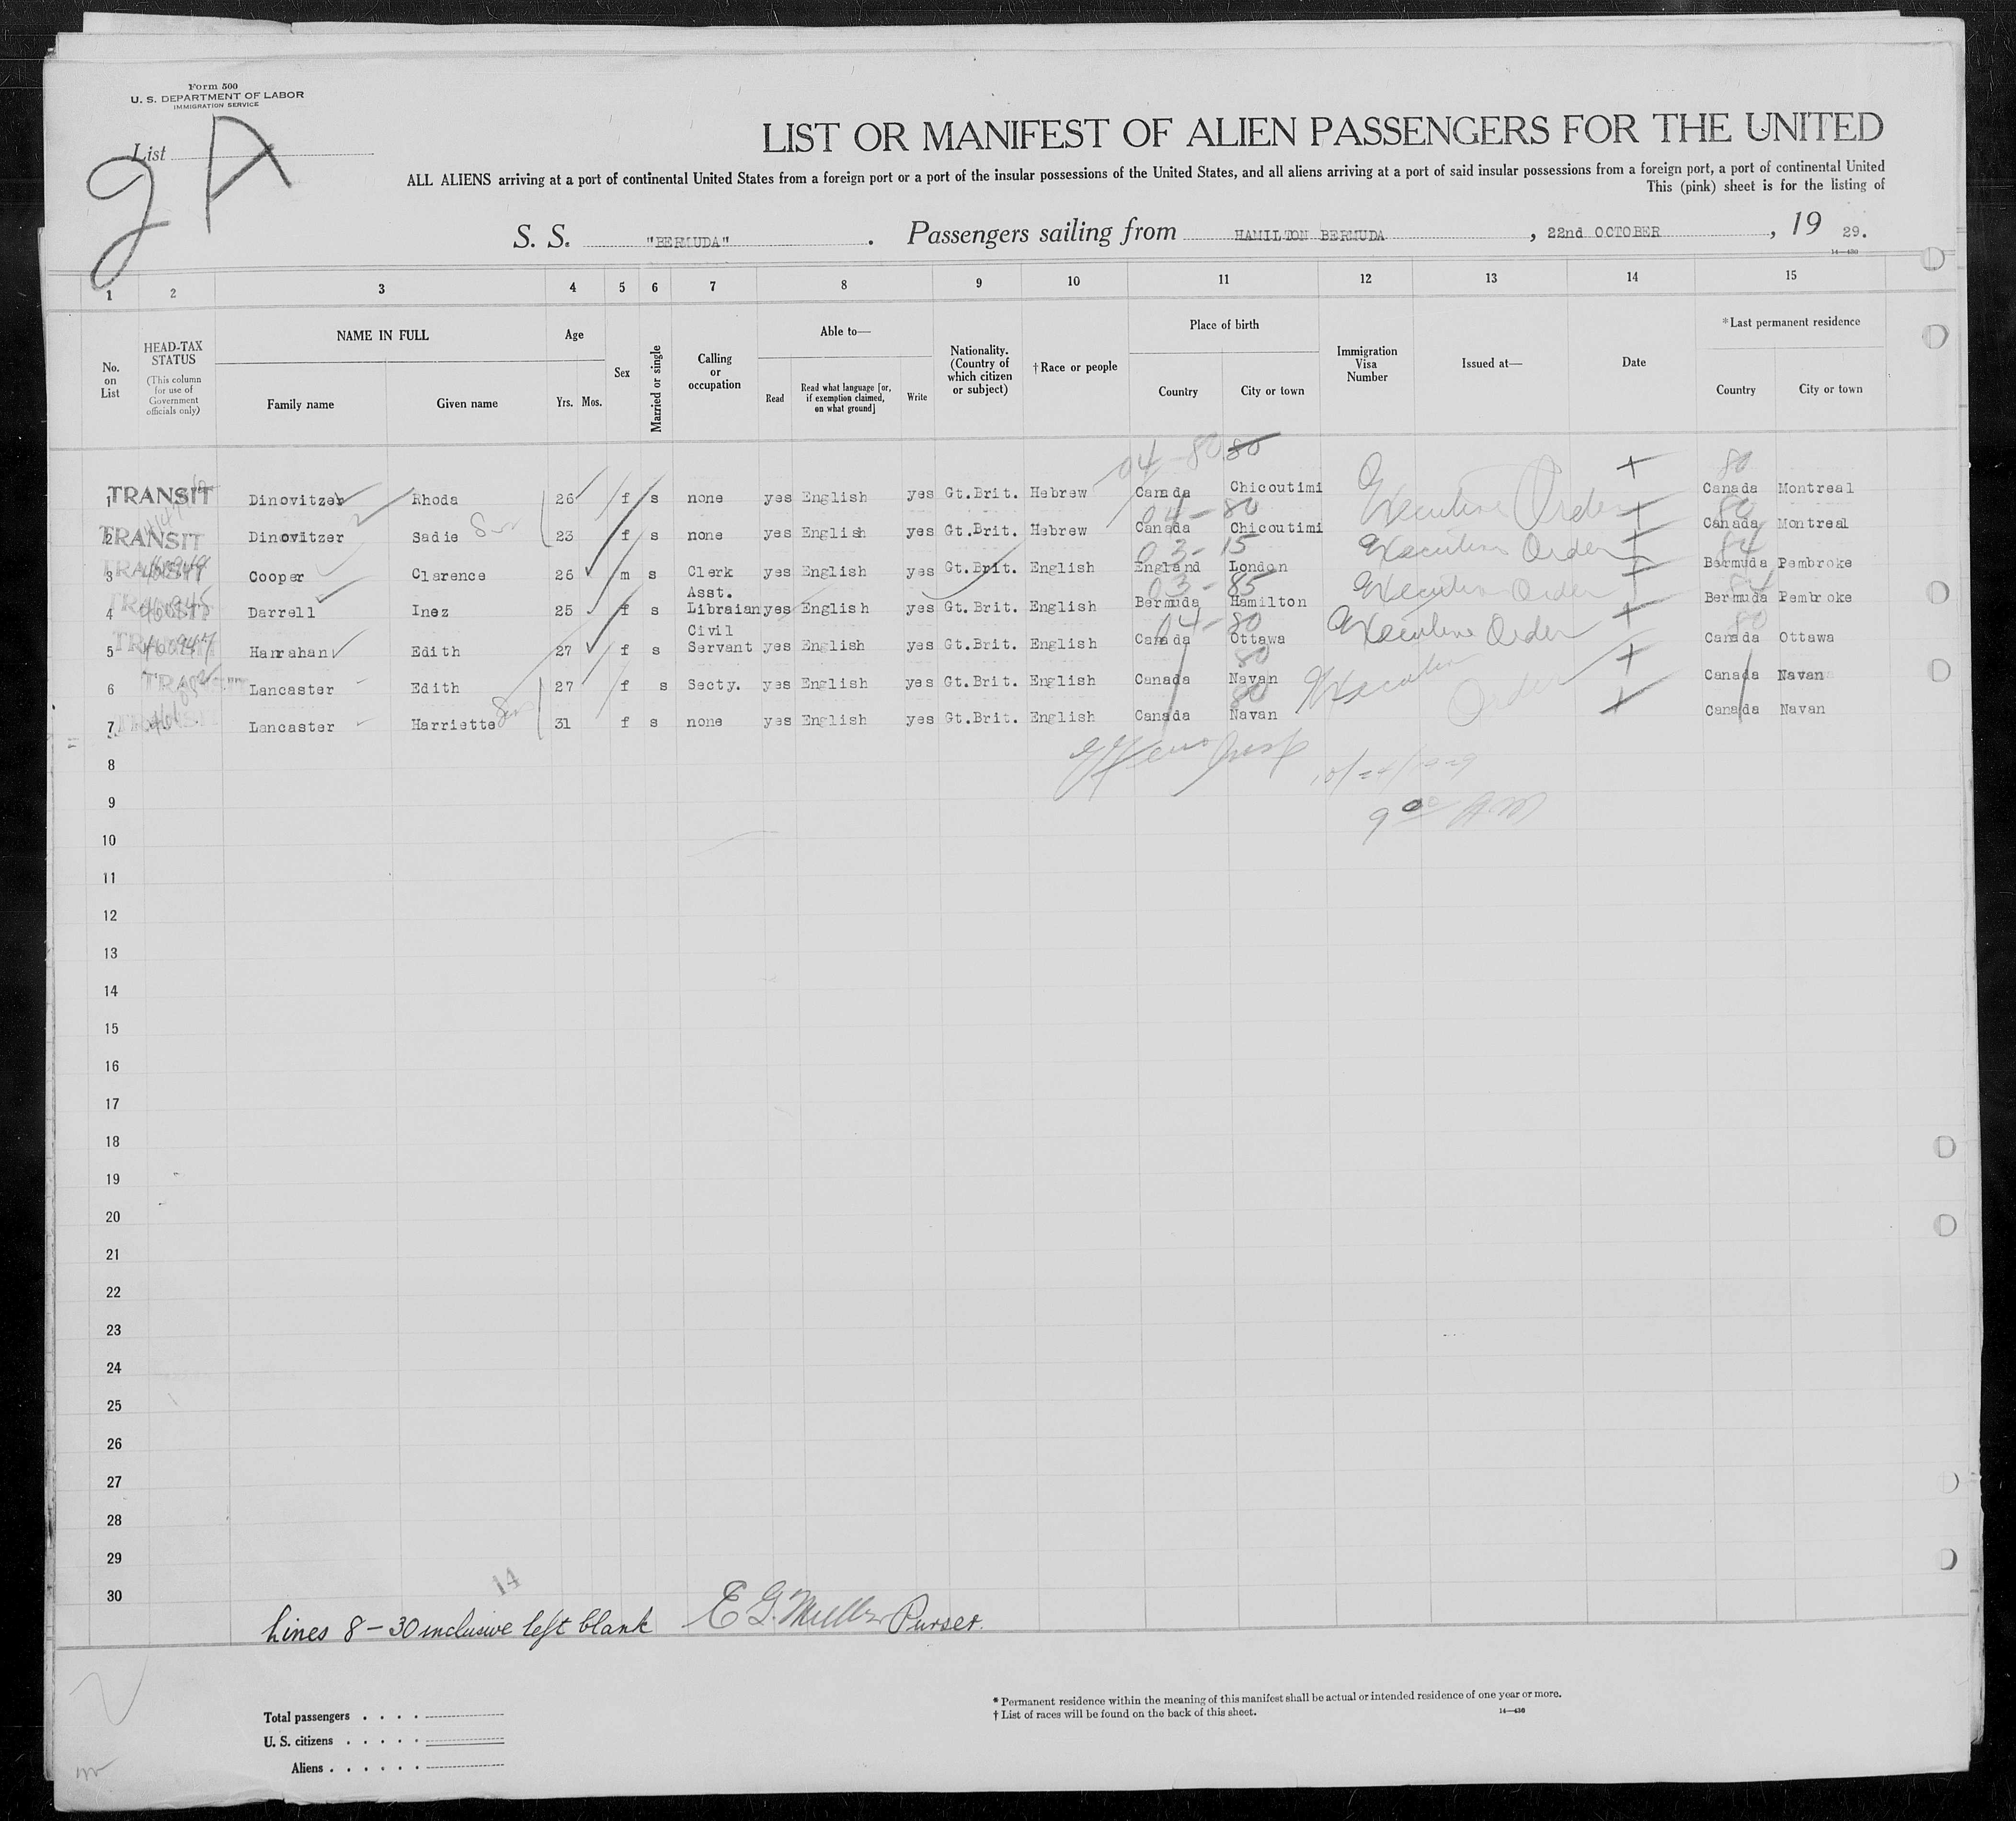 Form 500
U. S. DEPARTMENT OF LABOR
IMMIGRATION SERVICE
List
2 A
LIST OR MANIFEST OF ALIEN PASSENGERS FOR THE UNITED
ALL ALIENS arriving at a port of continental United States from a foreign port or a port of the insular possessions of the United States, and all aliens arriving at a port of said insular possessions from a foreign port, a port of continental United
This (pink) sheet is for the listing of
S. S. "BERMUDA". Passengers sailing from HAMILTON BERMUDA, 22nd OCTOBER, 19 29.
14—430
1 2 3 4 5 6 7 8 9 10 11 12 13 14 15
No. on List
HEAD-TAX STATUS
(This column for use of Government officials only)
NAME IN FULL
Family name
Given name
Age
Yrs. Mos.
Sex
Married or single
Calling or occupation
Able to—
Read
Read what language [or, if exemption claimed, on what ground]
Write
Nationality. (Country of which citizen or subject)
†Race or people
Place of birth
Country
City or town
Immigration Visa Number
Issued at—
Date
*Last permanent residence
Country
City or town
04-80 80 80
1 TRANSIT Dinovitzer Rhoda 26 f s none yes English yes Gt.Brit. Hebrew Canada Chicoutimi Executive Order Canada Montreal
04-80 80
2 TRANSIT Dinovitzer Sadie 23 f s none yes English yes Gt.Brit. Hebrew Canada Chicoutimi Canada Montreal
03-15 84
3 TRANSIT Cooper Clarence 26 m s Clerk yes English yes Gt.Brit. English England London Executive Order Bermuda Pembroke
03-85 84
4 TRANSIT Darrell Inez 25 f s Asst. Libraian yes English yes Gt.Brit. English Bermuda Hamilton Executive Order Bermuda Pembroke
04-80 80
5 Hanrahan Edith 27 f s Civil Servant yes English yes Gt.Brit. English Canada Ottawa Executive Order Canada Ottawa
80
6 TRANSIT Lancaster Edith 27 f s Secty. yes English yes Gt.Brit. English Canada Navan Executive Order Canada Navan
80
7 Lancaster Harriette 31 f s none yes English yes Gt.Brit. English Canada Navan Canada Navan
8
9
9 00 A.M
10
11
12
13
14
15
16
17
18
19
20
21
22
23
24
25
26
27
28
29
30
14
Lines 8 - 30 inclusive left blank E G. Miller Purser.
Total passengers . . . .
U. S. citizens . . . . .
Aliens . . . . . .
* Permanent residence within the meaning of this manifest shall be actual or intended residence of one year or more.
† List of races will be found on the back of this sheet.
14—430